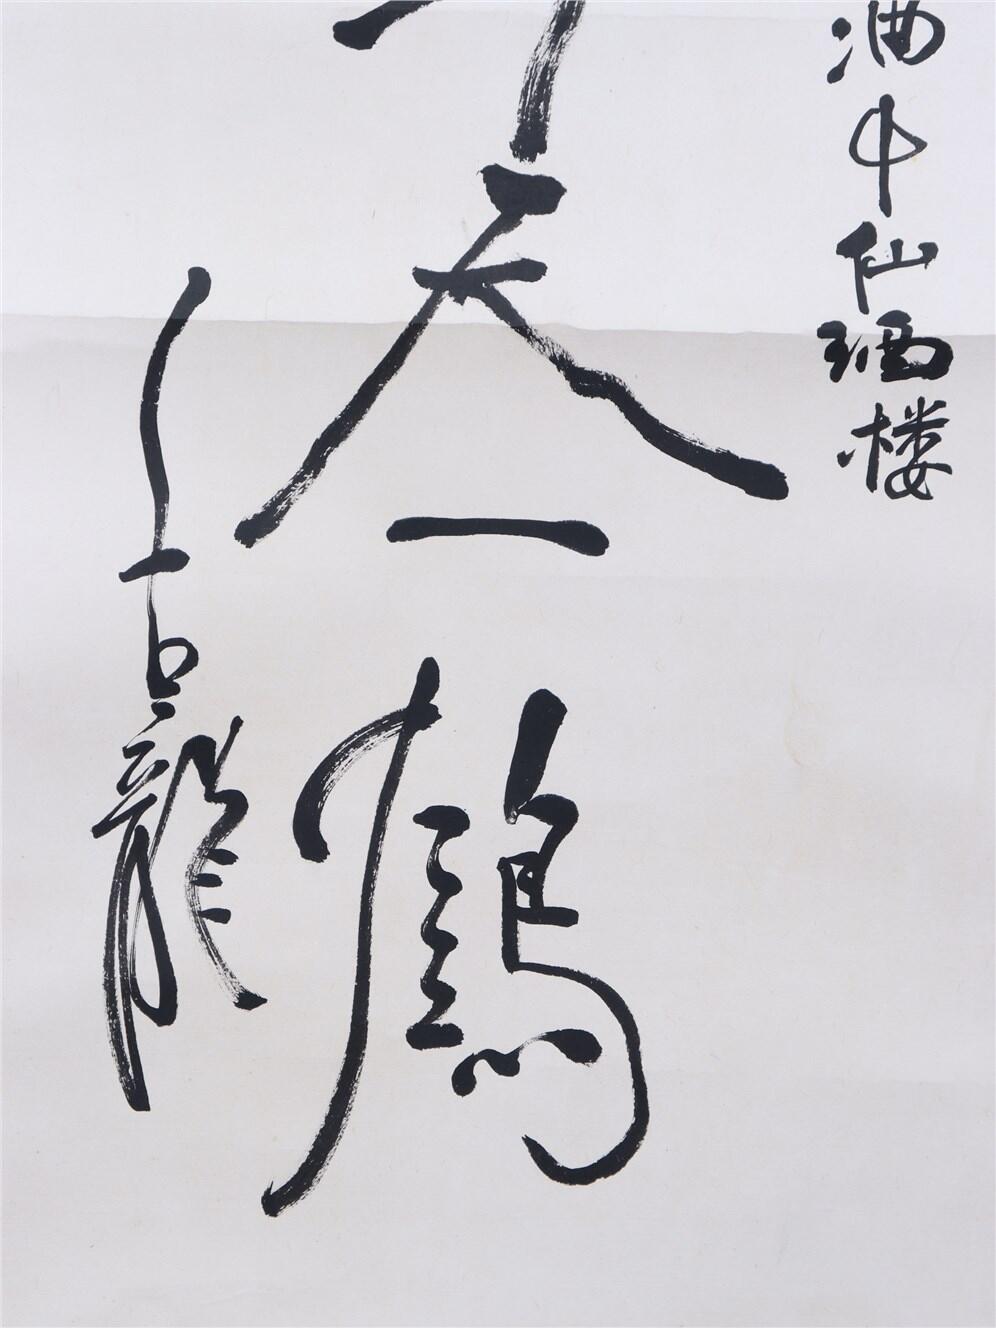 酒中仙酒楼
天一鶴
古龍